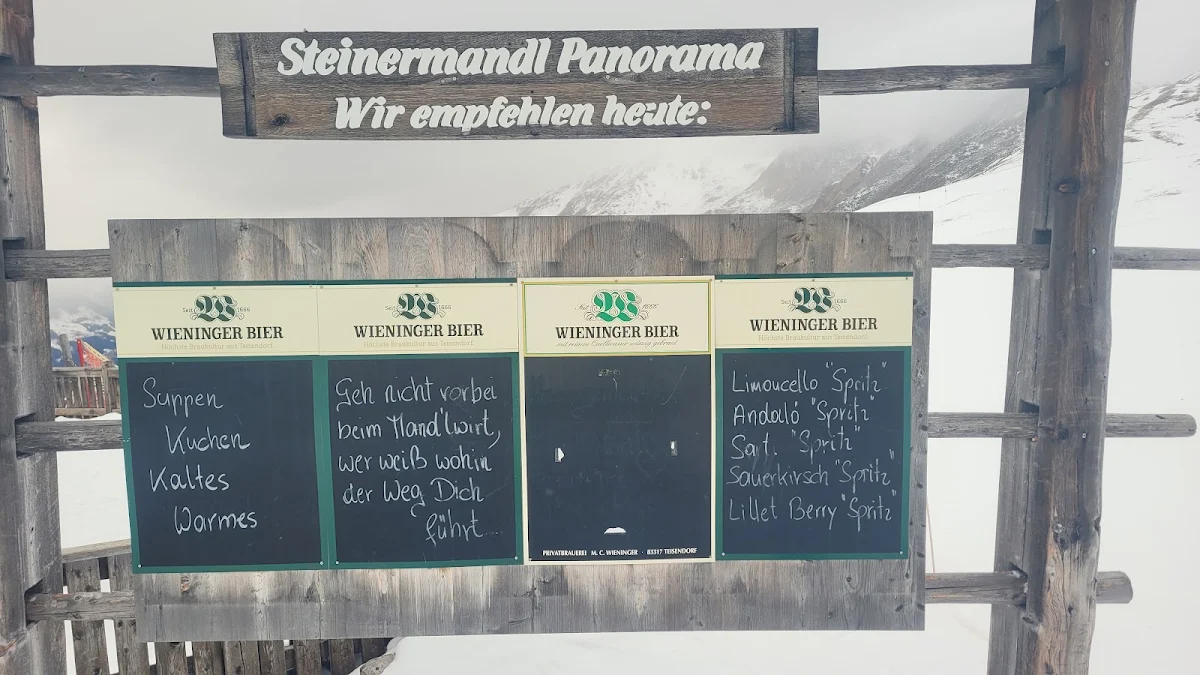 Steinermandl Panorama
Wir empfehlen heute:
Seit 1666
WIENINGER BIER
Höchste Braukultur aus Teisendorf
Suppen
Kuchen
Kaltes
Warmes
Seit 1666
WIENINGER BIER
Höchste Braukultur aus Teisendorf
Geh nicht vorbei
beim Mandlwirt,
wer weiß wohin
der Weg Dich
führt...
Seit 1666
WIENINGER BIER
mit reinem Quellwasser würzig gebraut
PRIVATBRAUEREI M. C. WIENINGER · 83317 TEISENDORF
Seit 1666
WIENINGER BIER
Höchste Braukultur aus Teisendorf
Limoncello "Spritz"
Andaló "Spritz"
Sart. "Spritz"
Sauerkirsch "Spritz"
Lillet Berry "Spritz"